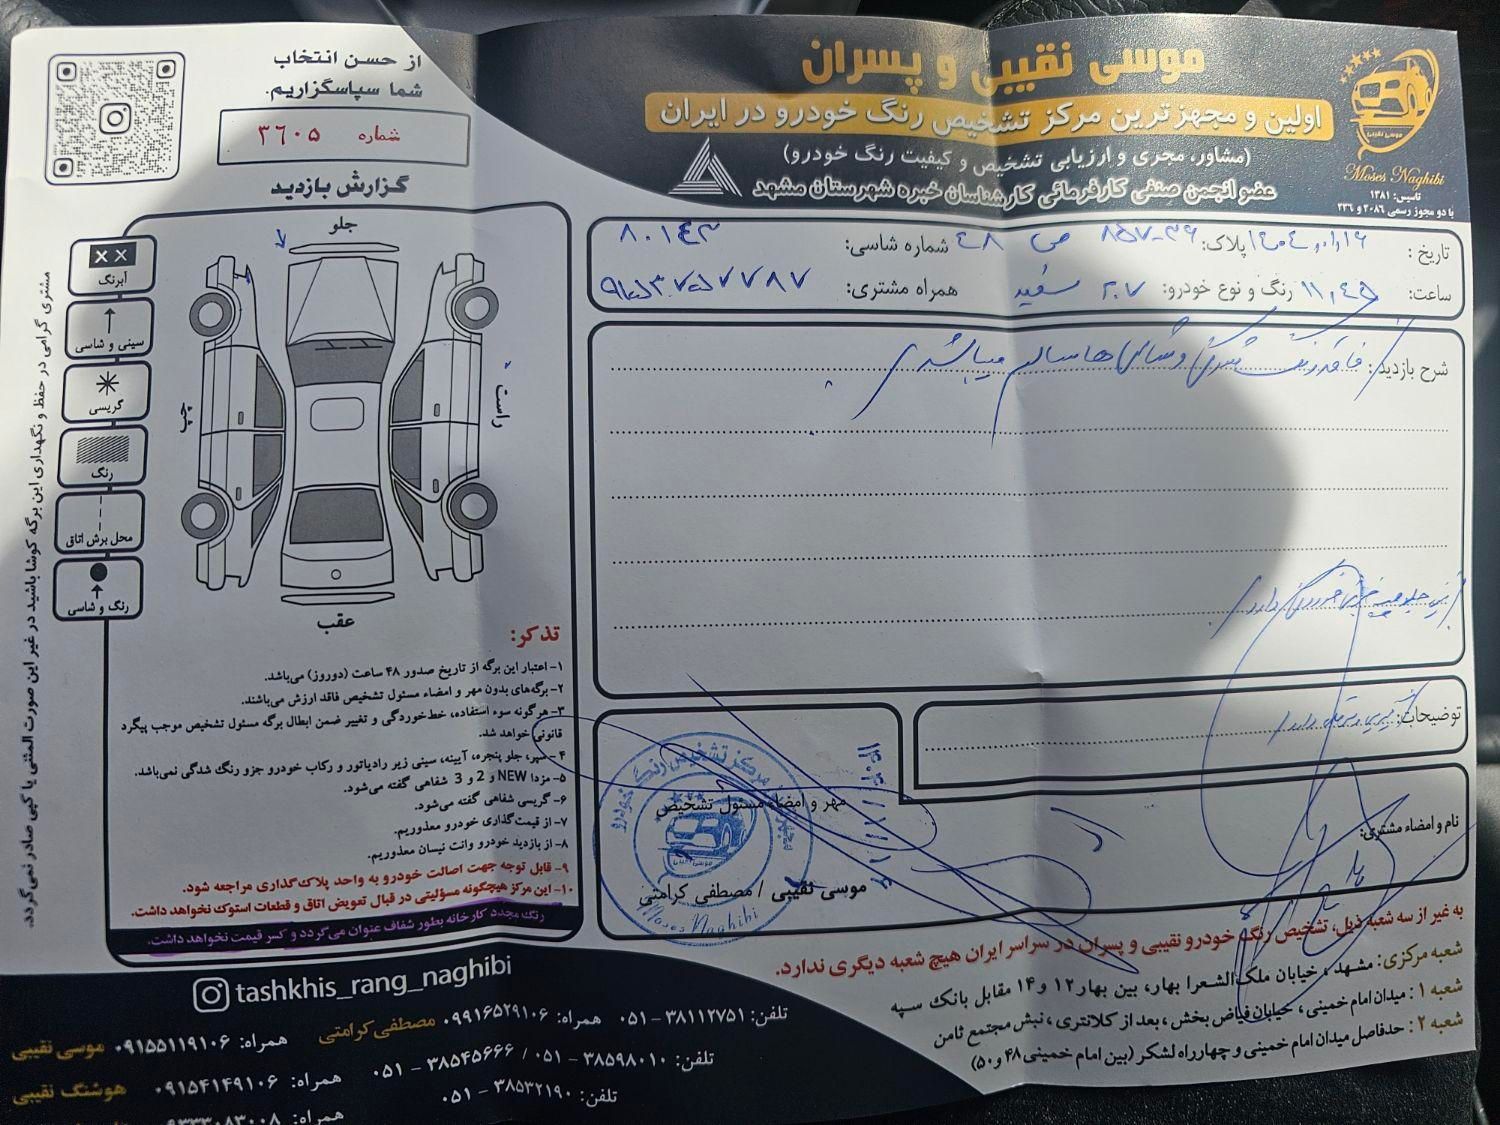 موسی نقیبی و پسران
اولین و مجهزترین مرکز تشخیص رنگ خودرو در ایران
(مشاور، مجری و ارزیابی تشخیص و کیفیت رنگ خودرو)
عضو انجمن صنفی کارفرمائی کارشناسان خبره شهرستان مشهد
Moses Naghibi
تاسیس: ۱۳۸۱
با دو مجوز رسمی ۲۰۸۶ و ۲۳۶
از حسن انتخاب
شما سپاسگزاریم.
شماره ۳۶۰۵
گزارش بازدید
تاریخ: پلاک: شماره شاسی: ۸۰۱۴۳
ساعت: ۱۱,۴۵ رنگ و نوع خودرو: ۲۰۷ سفید همراه مشتری:
شرح بازدید: فاقد رنگ شدگی و شاسی ها سالم میباشد
توضیحات:
نام و امضاء مشتری:
مهر و امضاء مسئول تشخیص
موسی نقیبی / مصطفی کرامتی
مرکز تشخیص رنگ خودرو
Moses Naghibi
۱۴۰۴/۱/۱۶
جلو
راست
چپ
عقب
آبرنگ
سینی و شاسی
گریسی
رنگ
محل برش اتاق
رنگ و شاسی
مشتری گرامی در حفظ و نگهداری این برگه کوشا باشید در غیر این صورت المثنی یا کپی صادر نمی‌گردد.
تذکر:
۱- اعتبار این برگه از تاریخ صدور ۴۸ ساعت (دوروز) می‌باشد.
۲- برگه‌های بدون مهر و امضاء مسئول تشخیص فاقد ارزش می‌باشند.
۳- هرگونه سوء استفاده، خط‌خوردگی و تغییر ضمن ابطال برگه مسئول تشخیص موجب پیگرد
قانونی خواهد شد.
۴- سپر، جلو پنجره، آیینه، سینی زیر رادیاتور و رکاب خودرو جزو رنگ شدگی نمی‌باشد.
۵- مزدا NEW و 2 و 3 شفاهی گفته می‌شود.
۶- گریسی شفاهی گفته می‌شود.
۷- از قیمت‌گذاری خودرو معذوریم.
۸- از بازدید خودرو وانت نیسان معذوریم.
۹- قابل توجه جهت اصالت خودرو به واحد پلاک‌گذاری مراجعه شود.
۱۰- این مرکز هیچگونه مسؤلیتی در قبال تعویض اتاق و قطعات استوک نخواهد داشت.
رنگ مجدد کارخانه بطور شفاف عنوان می‌گردد و کسر قیمت نخواهد داشت.
به غیر از سه شعبه ذیل، تشخیص رنگ خودرو نقیبی و پسران در سراسر ایران هیچ شعبه دیگری ندارد.
شعبه مرکزی: مشهد، خیابان ملک‌الشعرا بهار، بین بهار ۱۲ و ۱۴ مقابل بانک سپه
شعبه ۱: میدان امام خمینی، خیابان فیاض بخش، بعد از کلانتری، نبش مجتمع ثامن
شعبه ۲: حدفاصل میدان امام خمینی و چهارراه لشکر (بین امام خمینی ۴۸ و ۵۰)
tashkhis_rang_naghibi
تلفن: ۳۸۱۱۲۷۵۱ - ۰۵۱ همراه: ۰۹۹۱۶۵۲۹۱۰۶ مصطفی کرامتی
همراه: ۰۹۱۵۵۱۱۹۱۰۶ موسی نقیبی
تلفن: ۳۸۵۹۸۰۱۰ - ۰۵۱ / ۳۸۵۴۵۶۶۶ - ۰۵۱
همراه: ۰۹۱۵۴۱۴۹۱۰۶ هوشنگ نقیبی
تلفن: ۳۸۵۳۲۱۹۰ - ۰۵۱
همراه: ۰۹۳۳۳۰۸۳۰۰۸